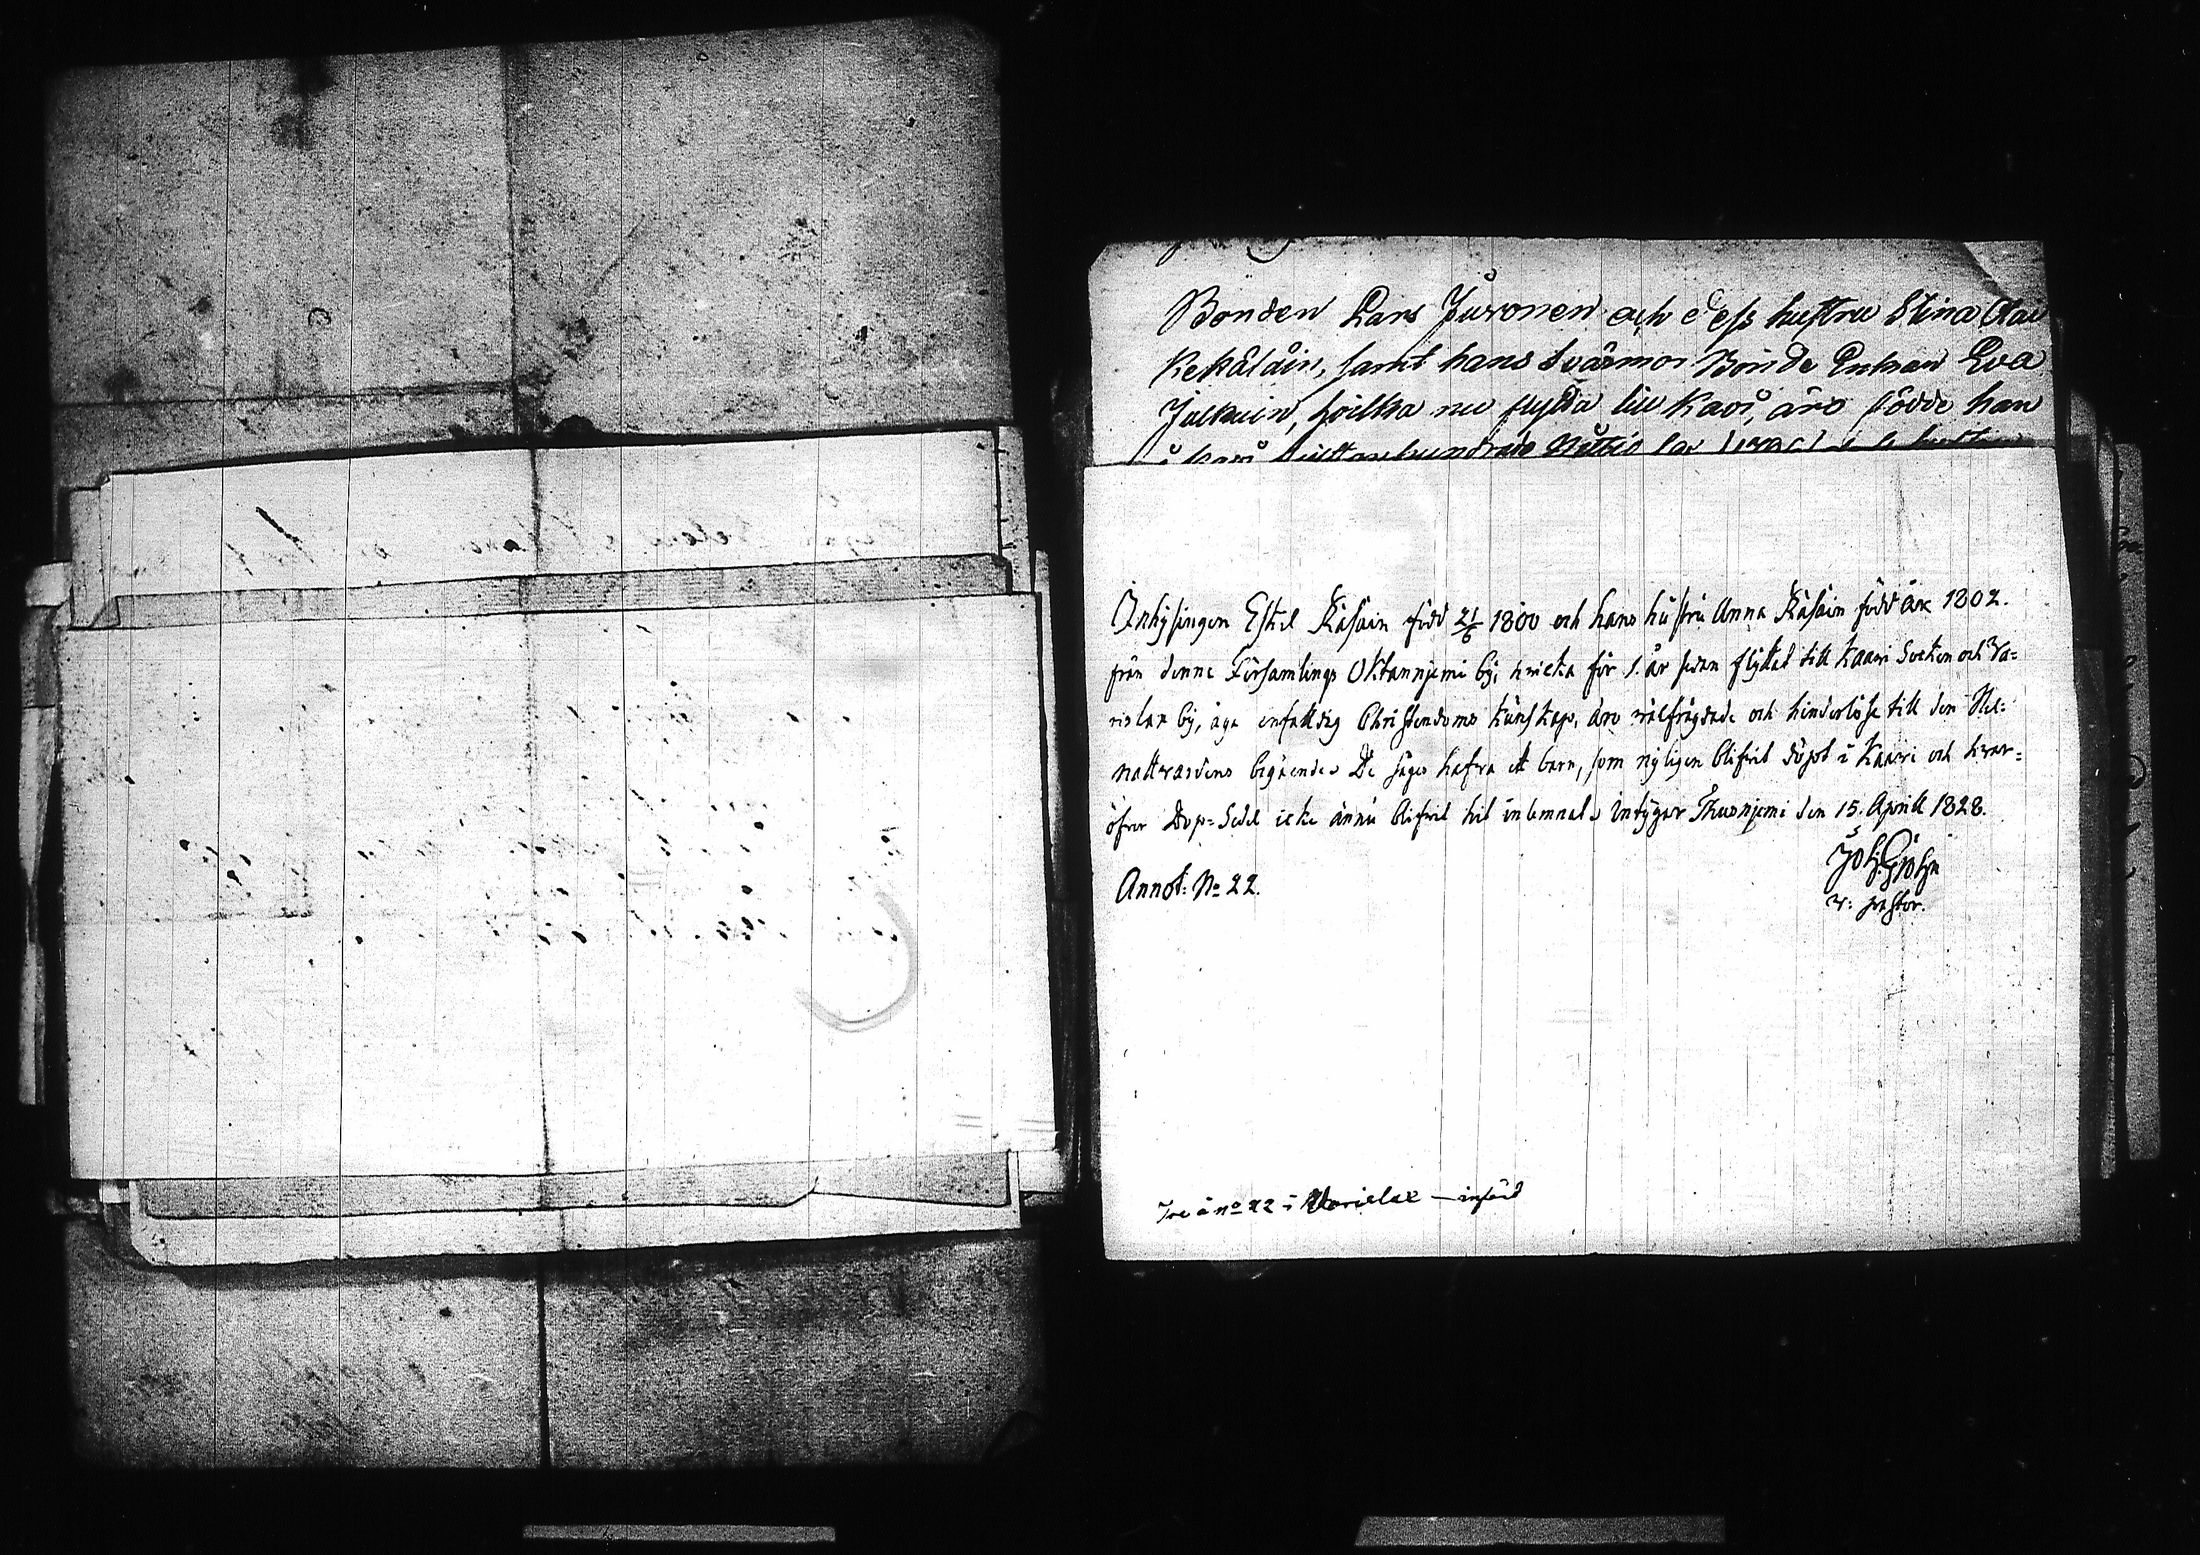 Bonden Lars Juvonen och dess hustru Stina
Kekäläin, samt hans Svärmor Bonde Enkan Eva
Julkuin, hvilka nu flytta till Kavi, äro födde han
i Kavi sjuttonhundrade Nittio
Inhysingen Eskel Räsäin född 21/6 1800 och hans hustru Anna Räsäin född år 1802.
från denne Församlings Oktannjemi by; hvilka för 1. år sedan flyttat till Kaavi Socken och Va=
rislax by, äga enfaldig Christendoms kunskap, äro välfrägdade och hinderlöse till den H.
nattvardens begående. De säges hafva ett barn, som nyligen blifvit döpt i Kaavi och hvar=
öfver Dop=Sedel icke ännu blifvit hit inlemnat. intygar Thusnjemi den 15. Aprill 1828.
Joh. Grohn
v: pastor.
Annot: No 22.
No 22 i — införd